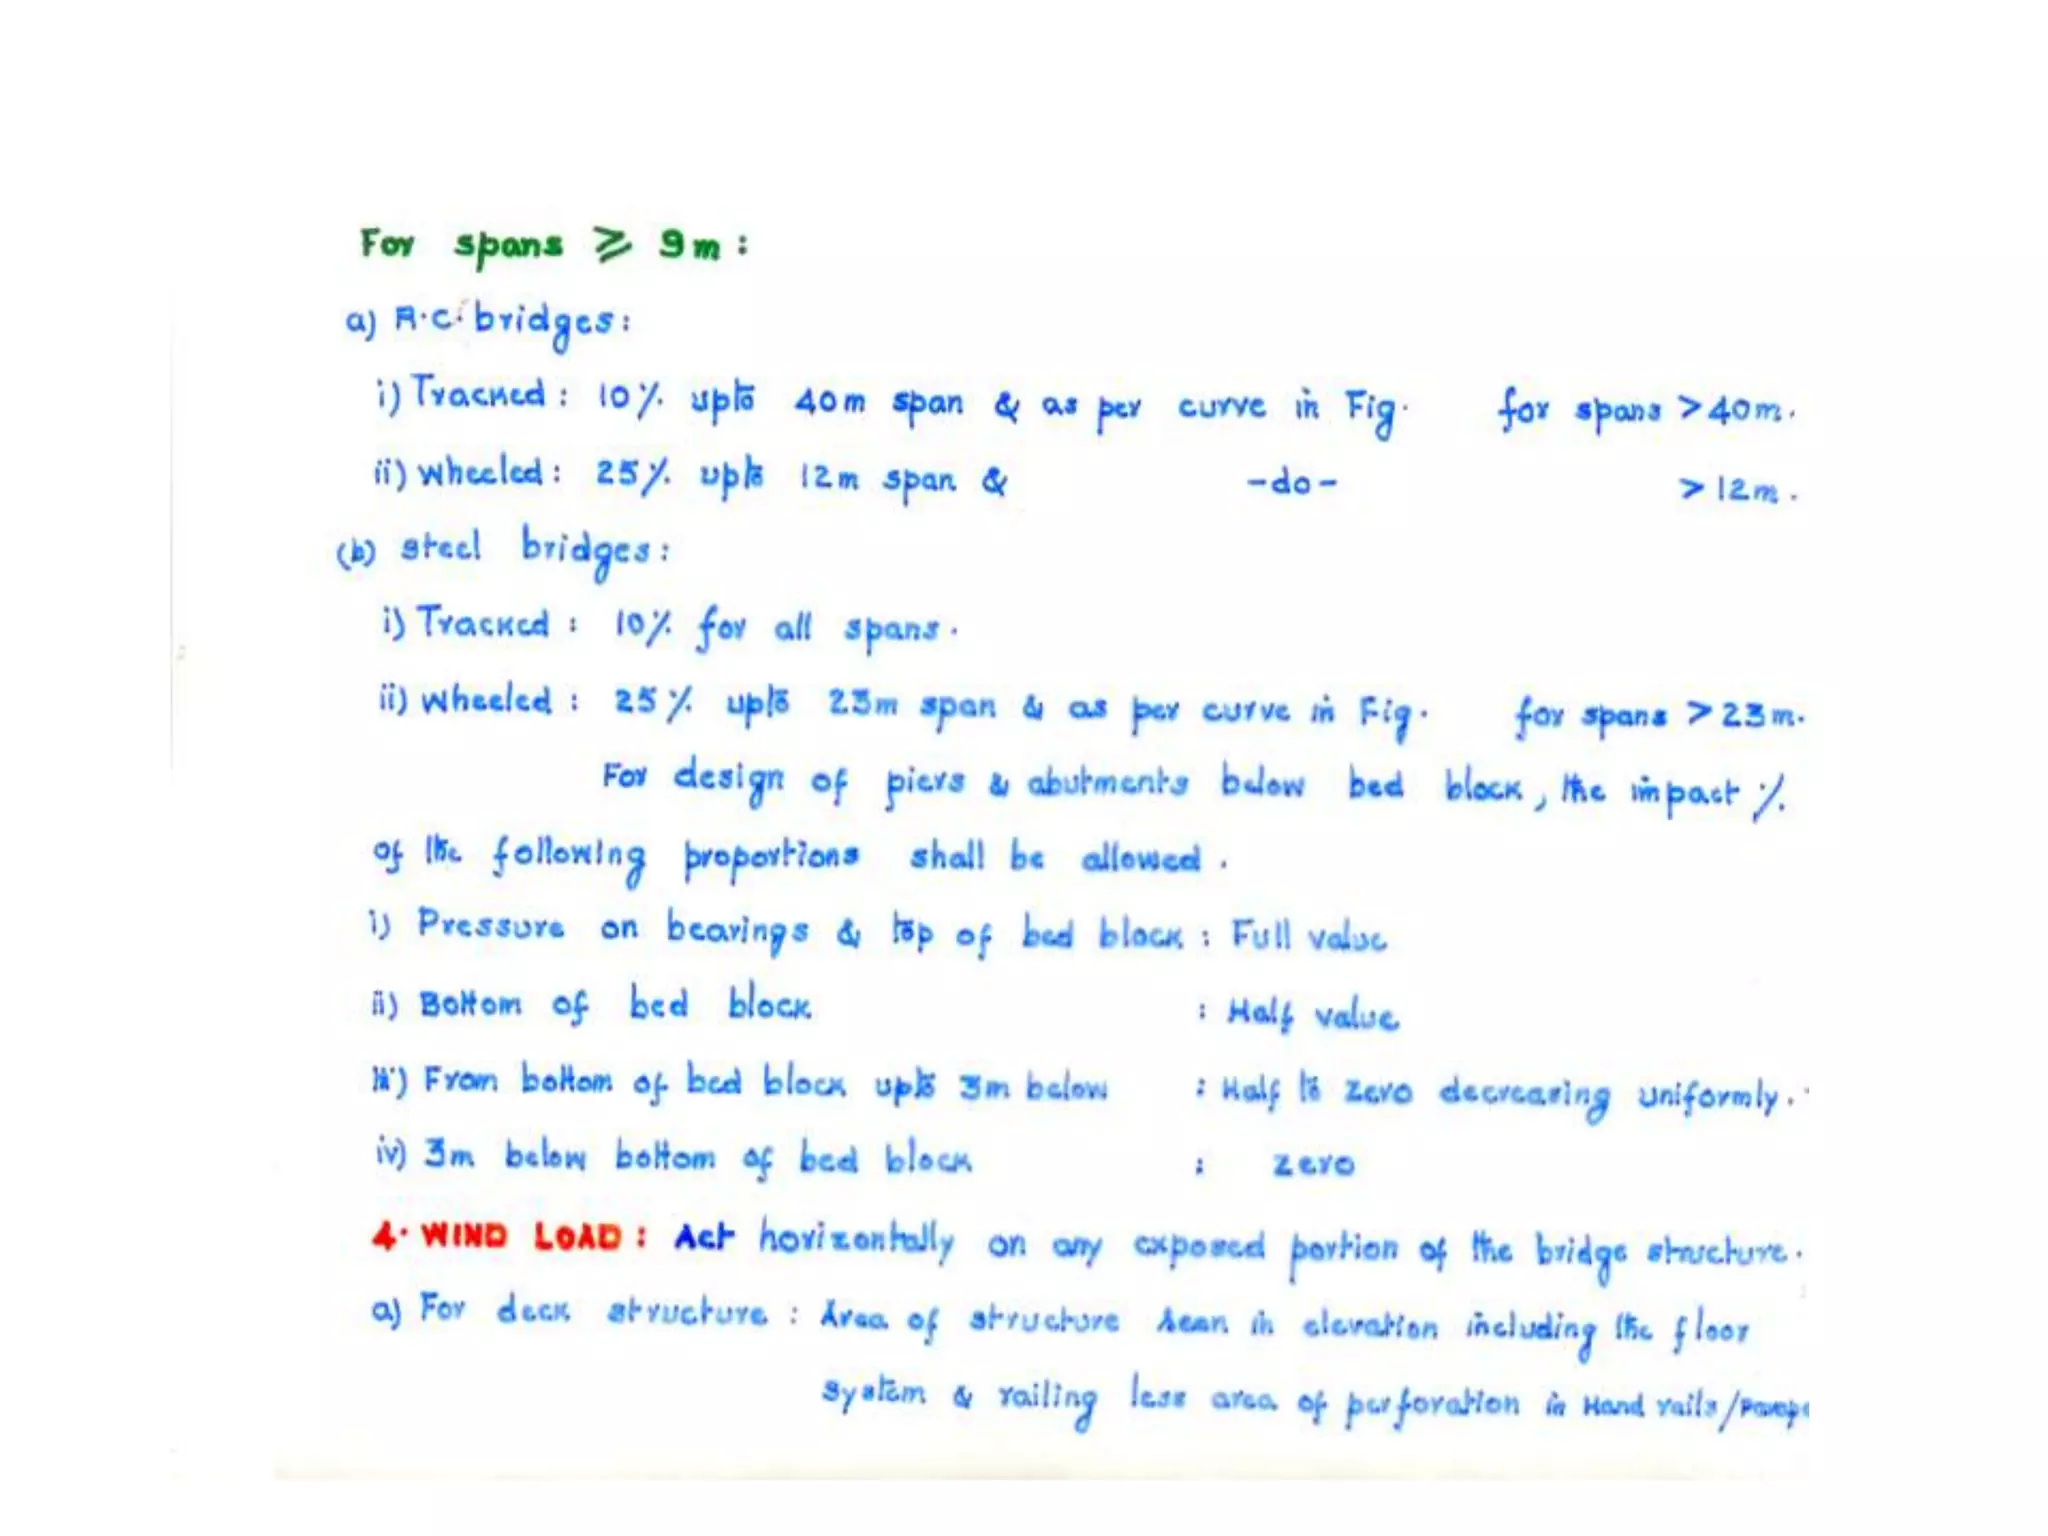 For spans ⩾ 9m :
a) R.C. bridges :
i) Tracked : 10% upto 40m span & as per curve in Fig. for spans > 40m.
ii) Wheeled : 25% upto 12m span & -do- > 12m.
(b) Steel bridges :
i) Tracked : 10% for all spans.
ii) Wheeled : 25% upto 23m span & as per curve in Fig. for spans > 23m.
For design of piers & abutments below bed block, the impact %
of the following proportions shall be allowed.
i) Pressure on bearings & top of bed block : Full value
ii) Bottom of bed block : Half value
iii) From bottom of bed block upto 3m below : Half to zero decreasing uniformly.
iv) 3m below bottom of bed block : zero
4. WIND LOAD : Act horizontally on any exposed portion of the bridge structure.
a) For deck structure : Area of structure seen in elevation including the floor
system & railing less area of perforation in Hand rails/Parape